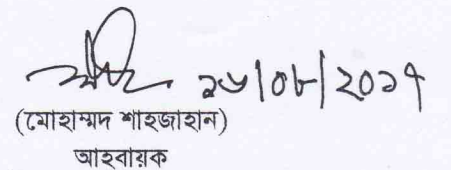 ১৬|০৮|২০১৭
(মোহাম্মদ শাহজাহান)
আহবায়ক